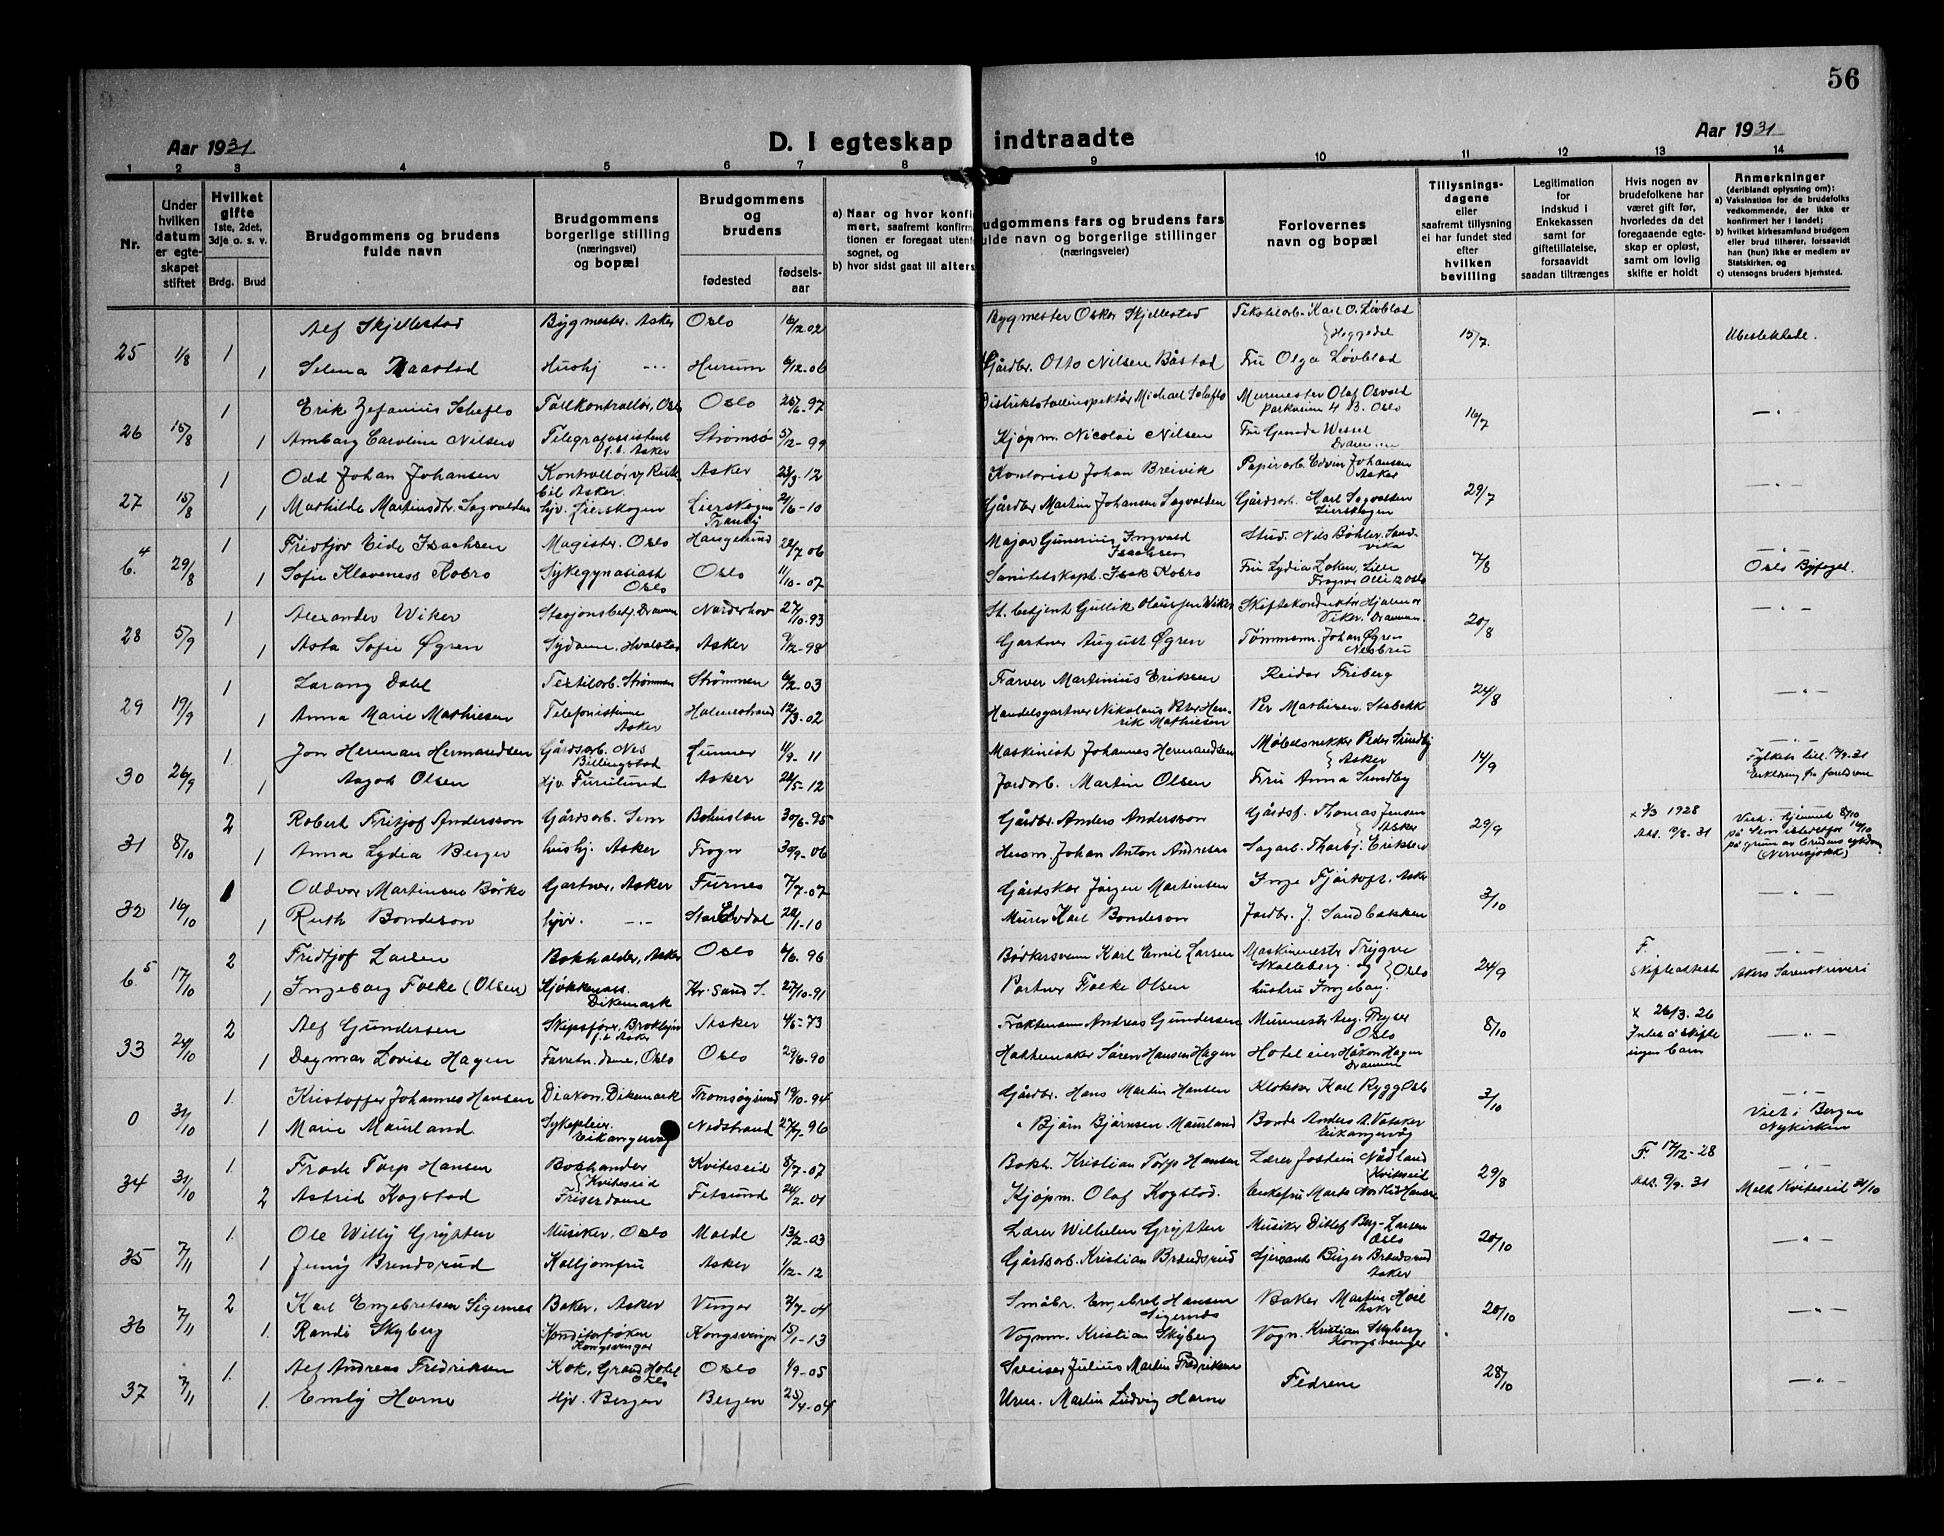 56
Aar 1931
D. I egteskap indtraadte
Aar 1931
1 2 3 4 5 6 7 8 9 10 11 12 13 14
Nr.
Under hvilken datum er egteskapet stiftet
Hvilket gifte 1ste, 2det, 3dje o. s. v.
Brdg. Brud
Brudgommens og brudens fulde navn
Brudgommens borgerlige stilling (næringsvei) og bopæl
Brudgommens og brudens
fødested
fødselsaar
a) Naar og hvor konfi
mert, saafremt konfirm
tionen er foregaat utenf
sognet, og
b) hvor sidst gaat til alters
udgommens fars og brudens fars
fulde navn og borgerlige stillinger
(næringsveier)
Forlovernes navn og bopæl
Tillysningsdagene eller saafremt tillysning ei har fundet sted efter hvilken bevilling
Legitimation for indskud i Enkekassen samt for giftetillatelse, forsaavidt saadan tiltrænges
Hvis nogen av brudefolkene har været gift før, hvorledes da det foregaaende egteskap er opløst, samt om lovlig skifte er holdt
Anmerkninger
(deriblandt oplysning om):
a) Vaksination for de brudefolks vedkommende, der ikke er konfirmert her i landet;
b) hvilket kirkesamfund brudgom eller brud tilhører, forsaavidt han (hun) ikke er medlem av Statskirken, og
c) utensogns bruders hjemsted.
Alf Skjellestad Bygmester. Asker Oslo 16/12 02 Bygmester Oskar Skjellestad Karl O. Løvblad
25 1/8 1 Heggedal 15/7 Ubeslektede.
1 Selma Hushj -·- Hurum 6/12-06 Gårdbr. Otto Nilsen Båstad Fru Olga Løvblad
1 Erik Zefanius Tollkontrollør, Oslo Oslo 25/6-97 Murmester Olaf Osvald
26 15/8 Parkveien 4 B. Oslo 16/7 -"-
1 Amborg Caroline Nilsen Telegrafassistent Strømsø 5/12-99 Kjøpm. Nicolai Nilsen Fru Gunda Wessel
f.t. Asker Drammen
1 Odd Johan Johansen Asker 23/9-12 Kontorist Johan Breivik Papirarb. Edvin Johansen
bil Asker. Asker
27 15/8 29/7 -"-
1 Mathilde Martinsdtr. Sagvolden Hjv. Lierskogen Lierskogen 21/6-10 Gårdbr. Martin Johansen Sagvolden Gårdsarb. Karl Sagvolden
Tranby Lierskogen
1 Fridtjov Eide Isachsen Magister. Oslo Haugesund 22/7 06 Major Gunerius Ingvald Stud. Nils Bøhler, Sand-
Isachsen vika
6.4 29/8 7/8 -"-
1 Sofie Klaveness Kobro Oslo 11/10-07 Sanitetskapt. Isak Kobro Fru Lydia Løken, Lille Oslo Byfogd.
Oslo Frogner Allé 12 Oslo
1 Alexander Wiker Stasjonsbetj. Drammen Norderhov 27/10-93 St. betjent Gullik Olaussen Wiker Skiftekonduktør Hjalmar
28 5/9 Viker. Drammen. 20/8 -"-
1 Asta Sofie Øgren Sydame, Hvalstad Asker 9/12-98 Gartner August Øgren Tømmerm. Johan Øgren
Nesbru
1 Dahl Textilarb. Strømmen Strømmen 6/2-03 Farver Martinius Eriksen Reidar Friberg
29 19/9 24/8 -"-
1 Anna Marie Mathiesen Telefonistinne Holmestrand 12/3-02 Handelsgartner Nikolaus Peter Hen- Per Mathisen. Stabekk
Asker rik Mathiesen
1 Jon Herman Hermandsen Gårdsarb. Nes Lunner 4/9-11 Maskinist Johannes Hermandsen Møbelsnekker Peder Sundby
Billingstad Asker
30 26/9 14/9 -"- Fylkets till. 17/9-31
1 Aagot Olsen Hjv. Furulund Asker 22/5-12 Jordarb. Martin Olsen Fru Anna Sundby Erklæring fra foreldrene
2 Robert Fritjof Andersson Gårdsarb. Sem Bohuslän 30/6-95 Gårdbr. Anders Andersson Gårdsf. Thomas Jensen x 3/3 1928
31 8/10 Asker 29/9 Viet i hjemmet 8/10
1 Anna Lydia Berger hushj. Asker Frogn 30/9-06 Husm. Johan Anton Andresen Sagarb. Thorbj. Eriksen på Sem istedetfor 10/10
på grunn av brudens sykdom
(Nervesjokk)
1 Oddvar Martinsen Børke Gartner, Asker Furnes 7/7-07 Gårdskar Jørgen Martinsen Asker
32 16/10 3/10 -"-
1 Ruth Bondeson hjv. -·- Stor Elvdal 22/1-10 Murer Karl Bondeson Jordbr. J. Sandbakken
2 Fridtjof Larsen Bokholder, Asker Oslo 4/6. 96 Bødkersvenn Karl Emil Larsen Maskinmester Trygve F.
6.5 17/10 Skalleberg. og Oslo 24/9 -"-
1 Ingeborg Folke (Olsen) Kjøkkenass. Kr. sand S. 27/10-91 Portner Folke Olsen hustru Ingeborg. Skifteattest Akers Sorenskriveri
Dikemark
2 Alf Gundersen Skipsfører, Broklyn Asker 4/5-73 Fraktemann Andreas Gundersen Murmester Aug. Thyser x 26/3. 26
f.t. Asker Oslo
33 24/10 8/10 -"-
1 Dagmar Lovise Hagen Oslo 29/6-90 Hattemaker Søren Hansen Hagen Hotel eier Håkon Hagen ingen barn
Drammen
1 Kristoffer Johannes Hansen Diakon. Dikemark Tromsøysund 19/10-94 Gårdbr. Hans Martin Hansen Klokker Karl Rygg Oslo
0 31/10 3/10 -"-
1 Marie Maurland Sykepleier. Nedstrand 27/7-96 " Bjørn Bjørnsen Maurland Bonde Anders A. Viet i Bergen
Eikangervåg Eikangervåg Nykirken
1 Frode Torp Hansen Kviteseid 8/7-07 Bokh. Kristian Torp Hansen Lærer Jostein Nådland F. 17/12-28
Kviteseid Kviteseid
34 31/10 29/8 -"-
2 Astrid Kogstad Friserdame Fetsund 24/2-01 Kjøpm. Olaf Kogstad. Enkefru Marta 9/9. 31 Meldt Kviteseid 31/10
1 Ole Willy Grytten Musiker, Oslo Molde 13/2-03 Lærer Wilhelm Grytten Musiker Ditlef Berg-Larsen
Oslo
35 7/11 20/10 -"-
1 Jenny Brendsrud Kolljomfru Asker 1/12-12 Gårdsarb. Kristian Brændsrud Sjersant Birger Brændsrud
Asker
2 Karl Engebretsen Sigernes Baker, Asker Vinger 7/7-04 Småbr. Engebret Hansen Baker Martin Hoel
Sigernes Asker
36 7/11 20/10 -"-
1 Randi Skyberg Konditorfrøken Kongsvinger 15/1-13 Vognm. Kristian Skyberg Vogn. Kristian Skyberg
Kongsvinger Kongsvinger
1 Alf Andreas Fredriksen Kok, Grand Hotel Oslo 1/9-05 Sveiser Julius Martin Fredriksen
Oslo
37 7/11 Fedrene 28/10 -"-
1 Emly Horne Hjv. Bergen Bergen 25/4-04 Urm. Martin Ludvig Horne